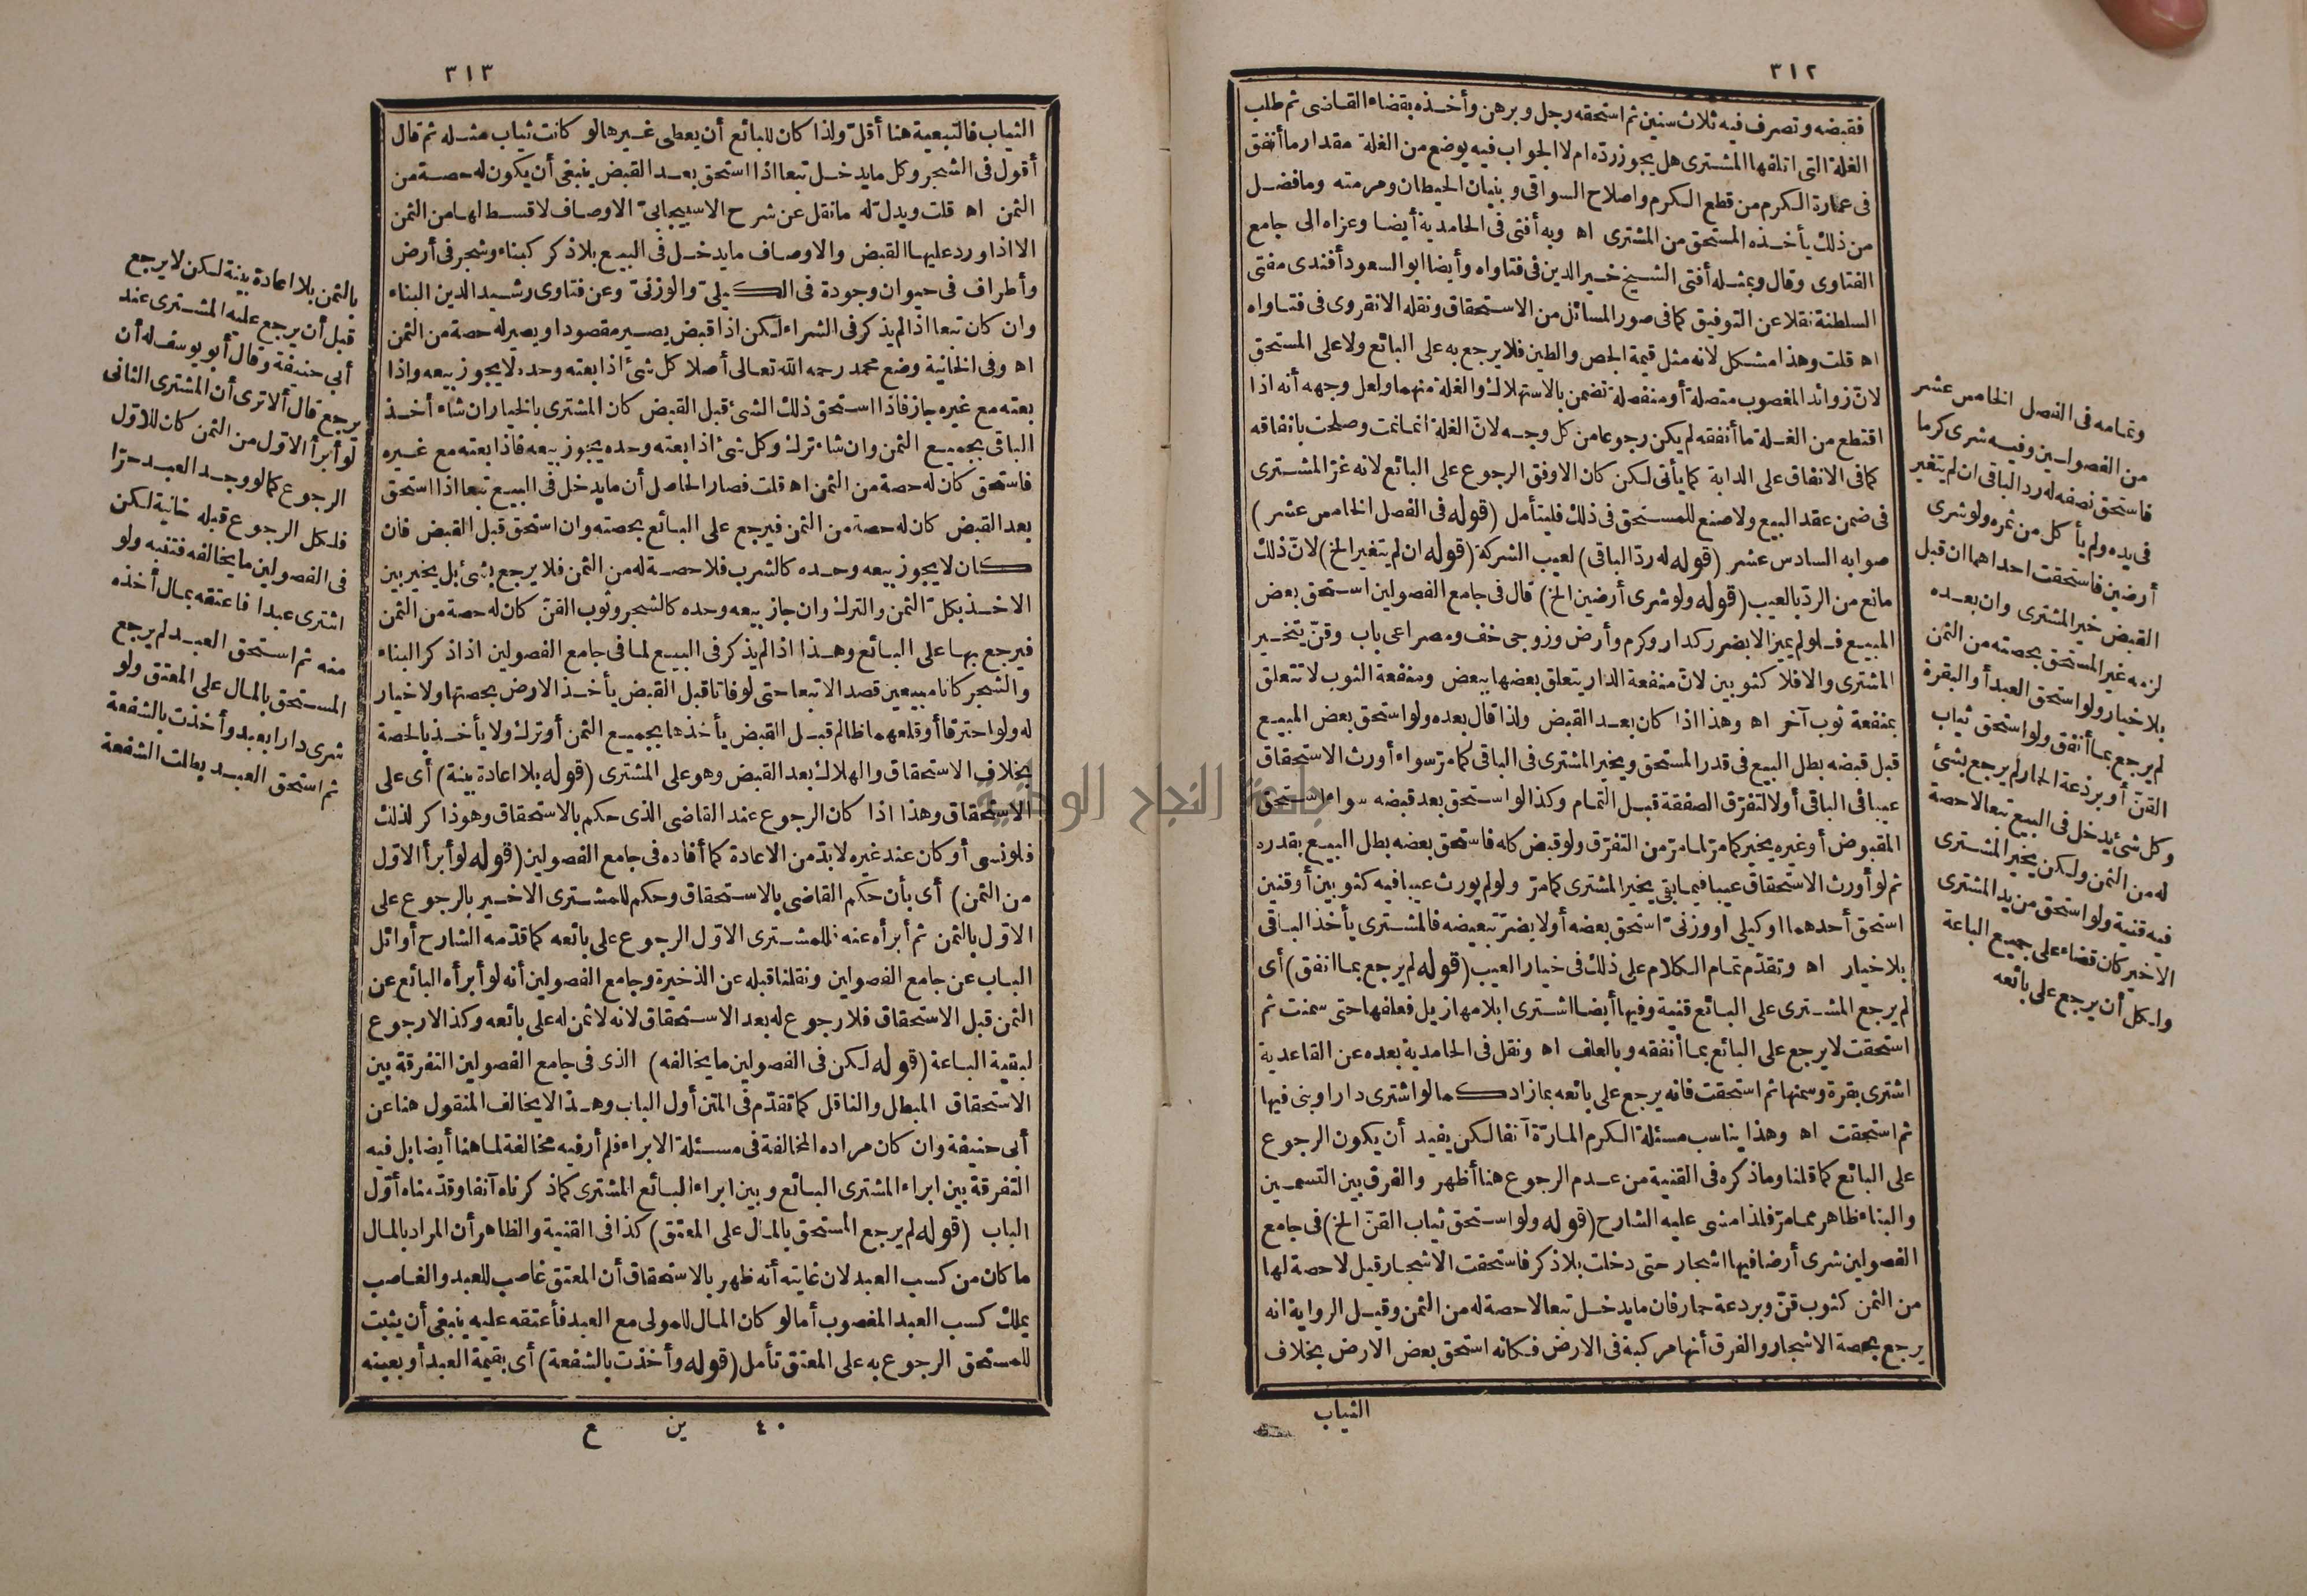 ٣١٢
فقبضه وتصرف فيه ثلاث سنين ثم استحقه رجل وبرهن وأخذه بقضاء القاضى ثم طلب
الغلة التى اتلفها المشترى هل يجوز ردّه ام لا الجواب فيه يوضع من الغلة مقدار ما أنفق
فى عمارة الكرم من قطع الكرم واصلاح السواقى وبنيان الحيطان ومرمته وما فضل
من ذلك يأخذه المستحق من المشترى اه وبه أفتى فى الحامدية أيضا وعزاه الى جامع
الفتاوى وقال وبمثله أفتى الشيخ خير الدين فى فتاواه وأيضا ابو السعود أفندى مفتى
السلطنة نقلا عن التوفيق كما فى صور المسائل من الاستحقاق ونقله الانقروى فى فتاواه
اه قلت وهذا مشكل لانه مثل قيمة الجص والطين فلا يرجع به على البائع ولا على المستحق
لانّ زوائد المغصوب متصلة أو منفصلة تضمن بالاستهلاك والغلة منها ولعل وجهه أنه اذا
اقتطع من الغلة ما أنفقه لم يكن رجوعا من كل وجه لانّ الغلة انما نمت وصلحت بانفاقه
كما فى الانفاق على الدابة كما يأتى لكن كان الاوفق الرجوع على البائع لانه غرّ المشترى
فى ضمن عقد البيع ولا صنع للمستحق فى ذلك فليتأمل (قوله فى الفصل الخامس عشر)
صوابه السادس عشر (قوله له ردّ الباقى) لعيب الشركة (قوله ان لم يتغير الخ) لانّ ذلك
مانع من الردّ بالعيب (قوله ولو شرى أرضين الخ) قال فى جامع الفصولين استحق بعض
المبيع فلو لم يميز الا بضرر كدار وكرم وأرض وزوجى خف ومصراعى باب وقنّ يتخير
المشترى والا فلا كثوبين لانّ منفعة الدار يتعلق بعضها ببعض ومنفعة الثوب لا تتعلق
بمنفعة ثوب آخر اه وهذا اذا كان بعد القبض ولذا قال بعده ولو استحق بعض المبيع
قبل قبضه بطل البيع فى قدر المستحق ويخير المشترى فى الباقى كما مرّ سواء أورث الاستحقاق
عيبا فى الباقى أولا لتفرّق الصفقة قبل التمام وكذا لو استحق بعد قبضه سواء استحق
المقبوض أو غيره يخير كما مرّ لما مرّ من التفرّق ولو قبض كله فاستحق بعضه بطل البيع بقدره
ثم لو أورث الاستحقاق عيبا فيما بقى يخير المشترى كما مرّ ولو لم يورث عيبا فيه كثوبين أو قنين
استحق أحدهما او كيلى او وزنىّ استحق بعضه أو لا يضرّ تبعيضه فالمشترى يأخذ الباقى
بلا خيار اه وتقدّم تمام الكلام على ذلك فى خيار العيب (قوله لم يرجع بما انفق) أى
لم يرجع المشترى على البائع قنية وفيها أيضا اشترى ابلا مهازيل فعلفها حتى سمنت ثم
استحقت لا يرجع على البائع بما أنفقه وبالعلف اه ونقل فى الحامدية بعده عن القاعدية
اشترى بقرة وسمنها ثم استحقت فانه يرجع على بائعه بما زاد كما لو اشترى دارا وبنى فيها
ثم استحقت اه وهذا يناسب مسئلة الكرم المارّة آنفا لكن يفيد أن يكون الرجوع
على البائع كما قلنا وما ذكره فى القنية من عدم الرجوع هنا أظهر والفرق بين التسمين
والبناء ظاهر مما مرّ فلذا مشى عليه الشارح (قوله ولو استحق ثياب القنّ الخ) فى جامع
الفصولين شرى أرضا فيها اشجار حتى دخلت بلا ذكر فاستحقت الاشجار قيل لا حصة لها
من الثمن كثوب قنّ وبردعة حمار فان ما يدخل تبعا لا حصة له من الثمن وقيل الرواية انه
يرجع بحصة الاشجار والفرق أنها مركبة فى الارض فكانه استحق بعض الارض بخلاف
الثياب
وتمامه فى الفصل الخامس عشر
من الفصولين وفيه شرى كرما
فاستحق نصفه له رد الباقى ان لم يتغير
فى يده ولم يأكل من ثمره ولو شرى
أرضين فاستحقت احداهما ان قبل
القبض خير المشترى وان بعده
لزمه غير المستحق بحصته من الثمن
بلا خيار ولو استحق العبد أو البقرة
لم يرجع بما أنفق ولو استحق ثياب
القنّ أو برذعة الحمار لم يرجع بشئ
وكل شئ يدخل فى البيع تبعا لا حصة
له من الثمن ولكن يخير المشترى
فيه قنية ولو استحق من يد المشترى
الاخير كان قضاء على جميع الباعة
ولكل أن يرجع على بائعه
٣١٣
الثياب فالتبعية هنا أقلّ ولذا كان للبائع أن يعطى غيرها لو كانت ثياب مثله ثم قال
أقول فى الشجر وكل ما يدخل تبعا اذا استحق بعد القبض ينبغى أن يكون له حصة من
الثمن اه قلت ويدلّ له ما نقل عن شرح الاسبيجابىّ الاوصاف لا قسط لها من الثمن
الا اذا ورد عليها القبض والاوصاف ما يدخل فى البيع بلا ذكر كبناء وشجر فى أرض
وأطراف فى حيوان وجودة فى الكيلىّ والوزنىّ وعن فتاوى رشيد الدين البناء
وان كان تبعا اذا لم يذكر فى الشراء لكن اذا قبض يصير مقصودا ويصير له حصة من الثمن
اه وفى الخانية وضع محمد رحمه الله تعالى أصلا كل شئ اذا بعته وحده لا يجوز بيعه واذا
بعته مع غيره جاز فاذا استحق ذلك الشئ قبل القبض كان المشترى بالخيار ان شاء أخذ
الباقى بجميع الثمن وان شاء ترك وكل شئ اذا بعته وحده يجوز بيعه فاذا بعته مع غيره
فاستحق كان له حصة من الثمن اه قلت فصار الحاصل أن ما يدخل فى البيع تبعا اذا استحق
بعد القبض كان له حصة من الثمن فيرجع على البائع بحصته وان استحق قبل القبض فان
كان لا يجوز بيعه وحده كالشرب فلا حصة له من الثمن فلا يرجع بشئ بل يخير بين
الاخذ بكلّ الثمن والترك وان جاز بيعه وحده كالشجر وثوب القنّ كان له حصة من الثمن
فيرجع بها على البائع وهذا اذا لم يذكر فى البيع لما فى جامع الفصولين اذا ذكر البناء
والشجر كانا مبيعين قصدا لا تبعا حتى لو فاتا قبل القبض يأخذ الارض بحصتها ولا خيار
له ولو احترقا أو قلعهما ظالم قبل القبض يأخذها بجميع الثمن أو ترك ولا يأخذ بالحصة
بخلاف الاستحقاق والهلاك بعد القبض وهو على المشترى (قوله بلا اعادة بينة) أى على
الاستحقاق وهذا اذا كان الرجوع عند القاضى الذى حكم بالاستحقاق وهو ذاكر لذلك
فلو نسى أو كان عند غيره لا بدّ من الاعادة كما أفاده فى جامع الفصولين (قوله لو أبرأ الاول
من الثمن) أى بأن حكم القاضى بالاستحقاق وحكم للمشترى الاخير بالرجوع على
الاوّل بالثمن ثم أبرأه عنه فللمشترى الاوّل الرجوع على بائعه كما قدّمه الشارح أوائل
الباب عن جامع الفصولين ونقلنا قبله عن الذخيرة وجامع الفصولين أنه لو أبرأه البائع عن
الثمن قبل الاستحقاق فلا رجوع له بعد الاستحقاق لانه لا ثمن له على بائعه وكذا لا رجوع
لبقية الباعة (قوله لكن فى الفصولين ما يخالفه) الذى فى جامع الفصولين التفرقة بين
الاستحقاق المبطل والناقل كما تقدّم فى المتن أول الباب وهذا لا يخالف المنقول هنا عن
أبى حنيفة وان كان مراده المخالفة فى مسئلة الابراء فلم أر فيه مخالفة لما هنا أيضا بل فيه
التفرقة بين ابراء المشترى البائع وبين ابراء البائع المشترى كما ذكرناه آنفا وقدّمناه أوّل
الباب (قوله لم يرجع المستحق بالمال على المعتق) كذا فى القنية والظاهر أن المراد بالمال
ما كان من كسب العبد لان غايته أنه ظهر بالاستحقاق أن المعتق غاصب للعبد والغاصب
يملك كسب العبد المغصوب أما لو كان المال للمولى مع العبد فأعتقه عليه ينبغى أن يثبت
للمستحق الرجوع به على المعتق تأمل (قوله وأخذت بالشفعة) أى بقيمة العبد أو بعينه
٤٠ ين ع
بالثمن بلا اعادة بينة لكن لا يرجع
قبل أن يرجع عليه المشترى عند
أبى حنيفة وقال أبو يوسف له أن
يرجع قال ألا ترى أن المشترى الثانى
لو أبرأ الاوّل من الثمن كان للاوّل
الرجوع كما لو وجد العبد حرّا
فلكل الرجوع قبله خانية لكن
فى الفصولين ما يخالفه فتنبه ولو
اشترى عبدا فاعتقه بمال أخذه
منه ثم استحق العبد لم يرجع
المستحق بالمال على المعتق ولو
شرى دارا بعبد وأخذت بالشفعة
ثم استحق العبد بطلت الشفعة
جامعة النجاح الوطنية